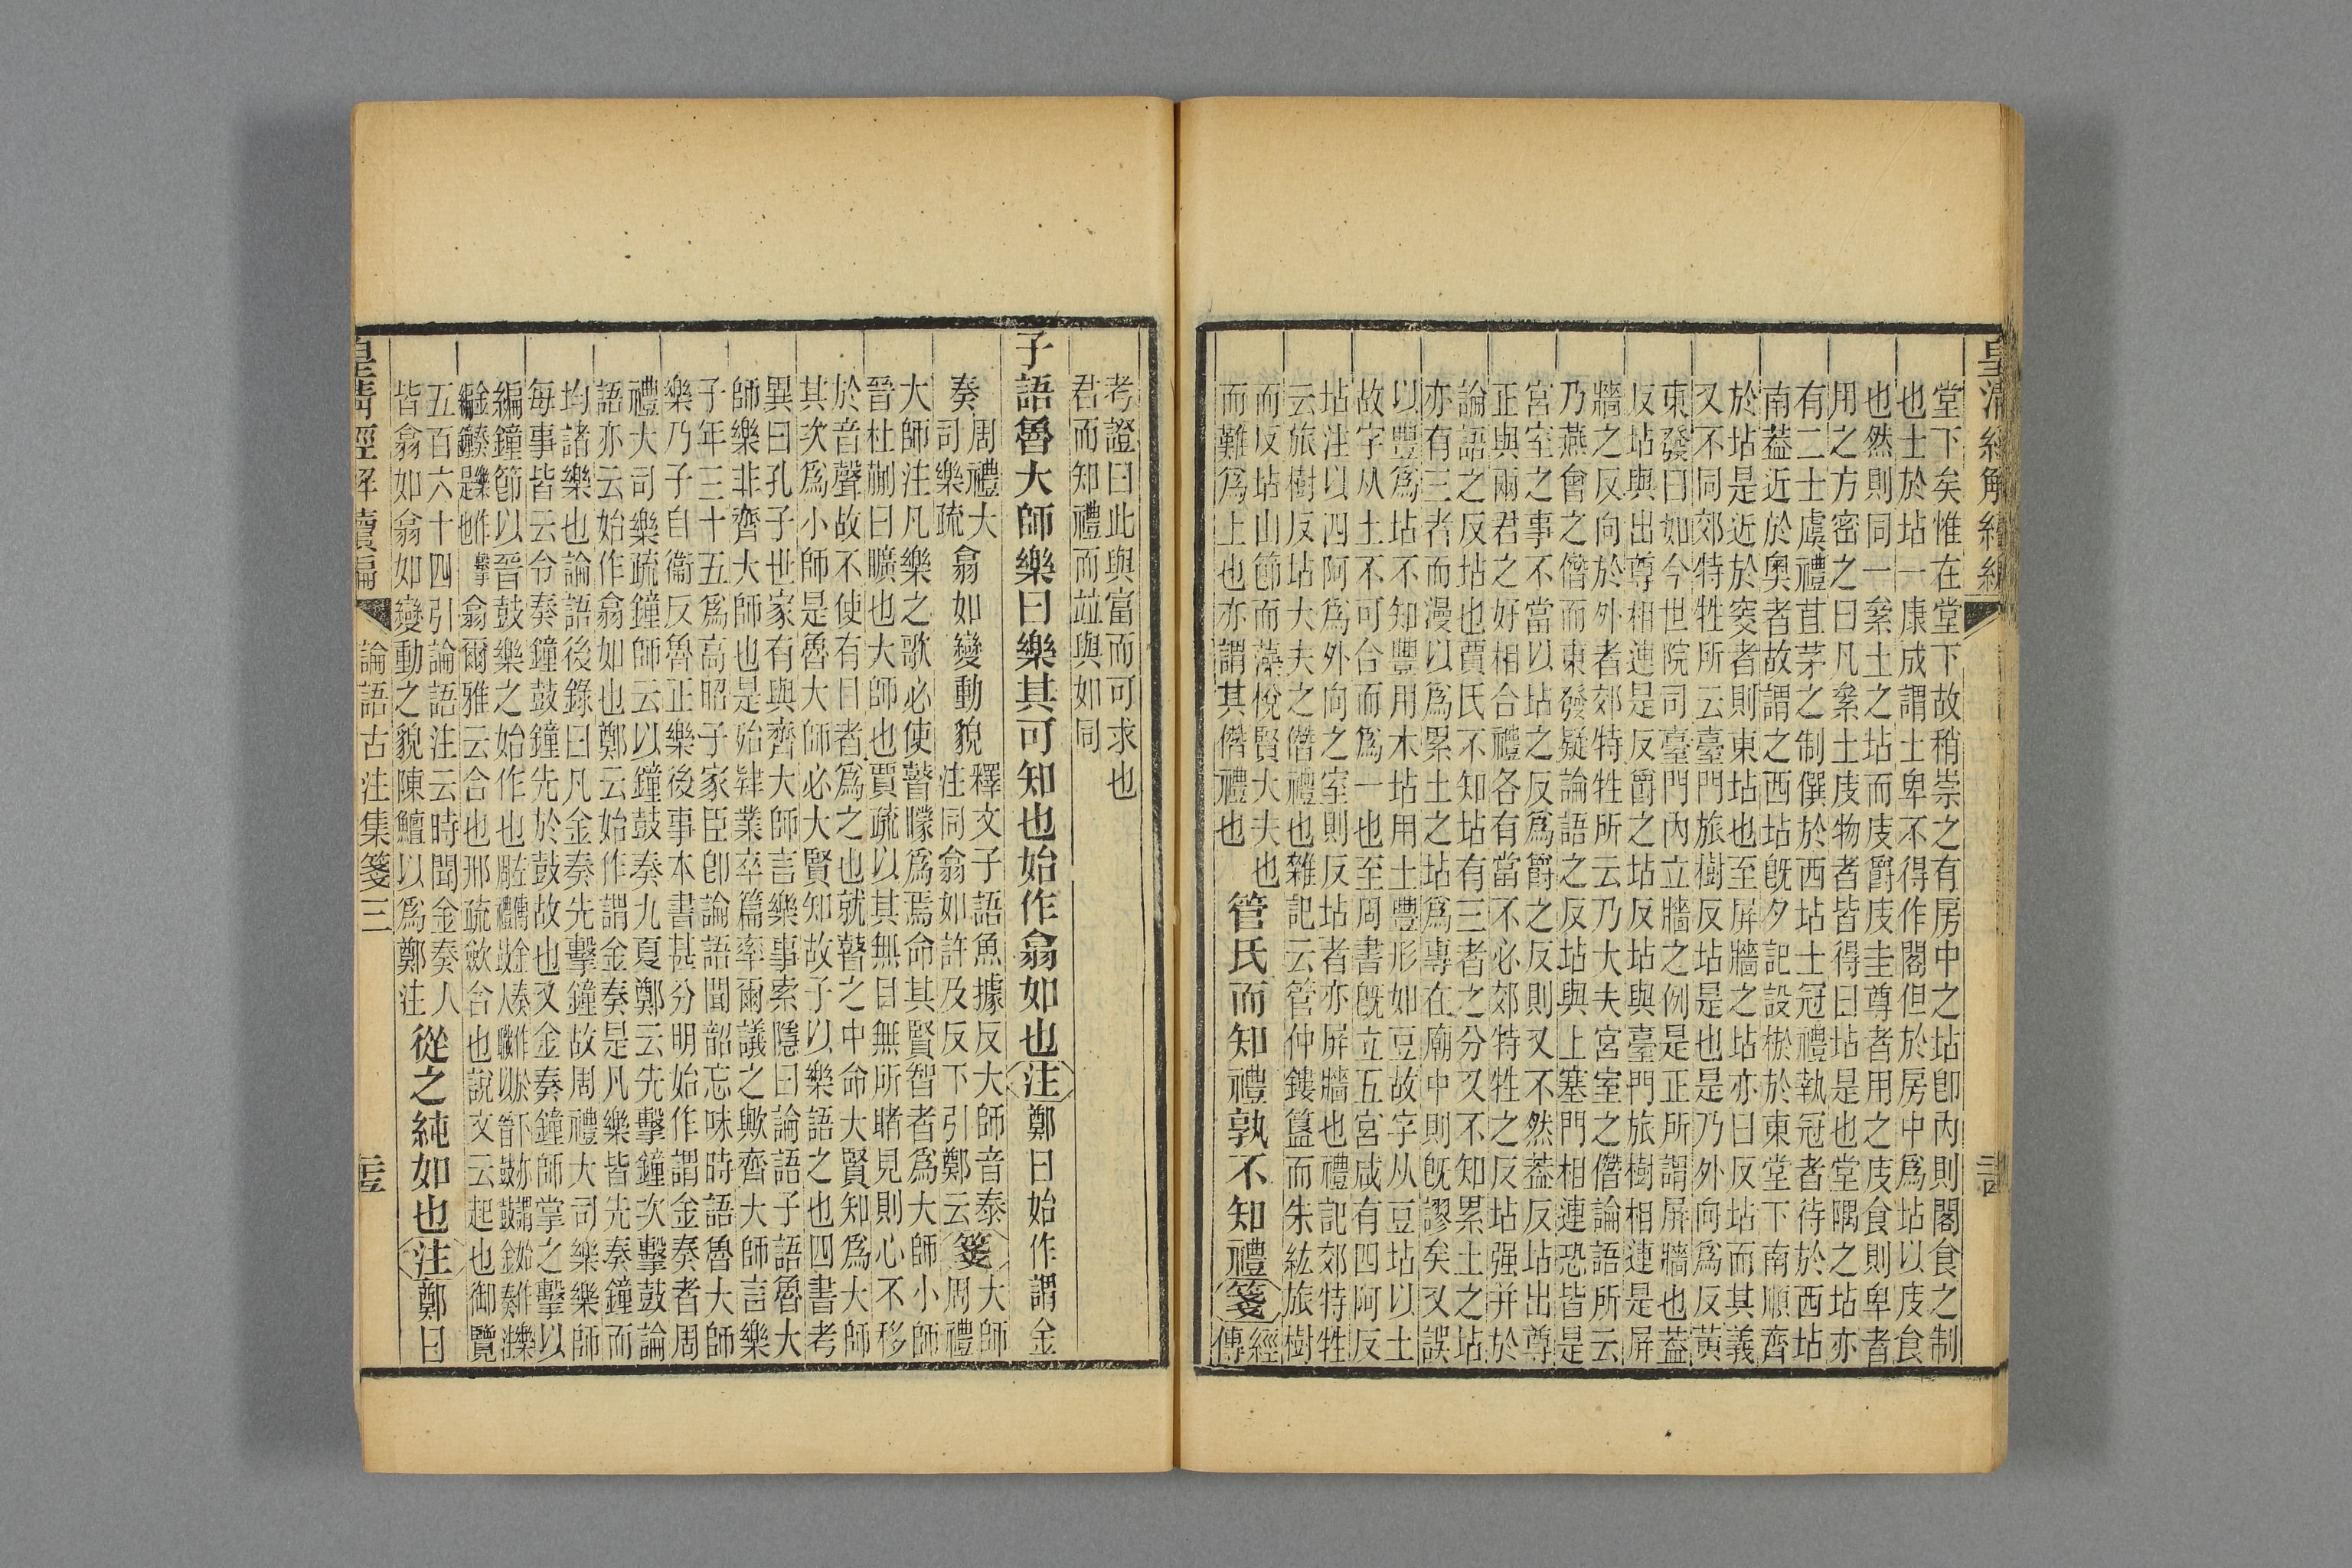 堂下矣惟在堂下故稍崇之有房中之坫卽內則閣食之制
也士於坫一康成謂士卑不得作閣但於房中爲坫以庋食
也然則同一絫土之坫而庋爵庋圭尊者用之庋食則卑者
用之方密之曰凡絫土庋物者皆得曰坫是也堂隅之坫亦
有二士虞禮苴茅之制僎於西坫士冠禮執冠者待於西坫
南葢近於奧者故謂之西坫旣夕記設棜於東堂下南順齊
於坫是近於窔者則東坫也至屏牆之坫亦曰反坫而其義
又不同郊特牲所云臺門旅樹反坫是也是乃外向爲反黃
東發曰如今世院司臺門內立牆之例是正所謂屏牆也葢
反坫與出尊相連是反爵之坫反坫與臺門旅樹相連是屏
牆之反向於外者郊特牲所云乃大夫宮室之僭論語所云
乃燕會之僭而東發疑論語之反坫與上塞門相連恐皆是
宮室之事不當以坫之反爲爵之反則又不然葢反坫出尊
正與兩君之好相合禮各有當不必郊特牲之反坫强并於
論語之反坫也賈氏不知坫有三者之分又不知累土之坫
亦有三者而漫以爲累土之坫爲專在廟中則旣謬矣又誤
以豐爲坫不知豐用木坫用土豐形如豆故字从豆坫以土
故字从土不可合而爲一也至周書旣立五宮咸有四阿反
坫注以四阿爲外向之室則反坫者亦屏牆也禮記郊特牲
云旅樹反坫大夫之僭禮也雜記云管仲鏤簋而朱紘旅樹
而反坫山節而藻梲賢大夫也
而難爲上也亦謂其僭禮也
管氏而知禮孰不知禮箋經
傳
考證曰此與富而可求也
君而知禮而竝與如同
子語魯大師樂曰樂其可知也始作翕如也注鄭曰始作謂金
奏周禮大
司樂疏翕如變動貌釋文子語魚據反大師音泰
注同翕如許及反下引鄭云箋大師
周禮
大師注凡樂之歌必使瞽矇爲焉命其賢智者爲大師小師
晉杜蒯曰曠也大師也賈疏以其無目無所睹見則心不移
於音聲故不使有目者爲之也就瞽之中命大賢知爲大師
其次爲小師是魯大師必大賢知故子以樂語之也四書考
異曰孔子世家有與齊大師言樂事索隱曰論語子語魯大
師樂非齊大師也是殆肄業卒篇率爾議之歟齊大師言樂
子年三十五爲高昭子家臣卽論語聞韶忘味時語魯大師
樂乃子自衞反魯正樂後事本書甚分明始作謂金奏者周
禮大司樂疏鐘師云以鐘鼓奏九夏鄭云先擊鐘次擊鼓論
語亦云始作翕如也鄭云始作謂金奏是凡樂皆先奏鐘而
均諸樂也論語後錄曰凡金奏先擊鐘故周禮大司樂樂師
每事皆云令奏鐘鼓鐘先於鼓故也又金奏鐘師掌之擊以
編鐘節以晉鼓樂之始作也
翕爾雅云合也邢疏歛合也說文云起也御覽
五百六十四引論語注云時聞金奏人
皆翕如翕如變動之貌陳鱣以爲鄭注
從之純如也注鄭曰
皇清經解續編
論語古注集箋三